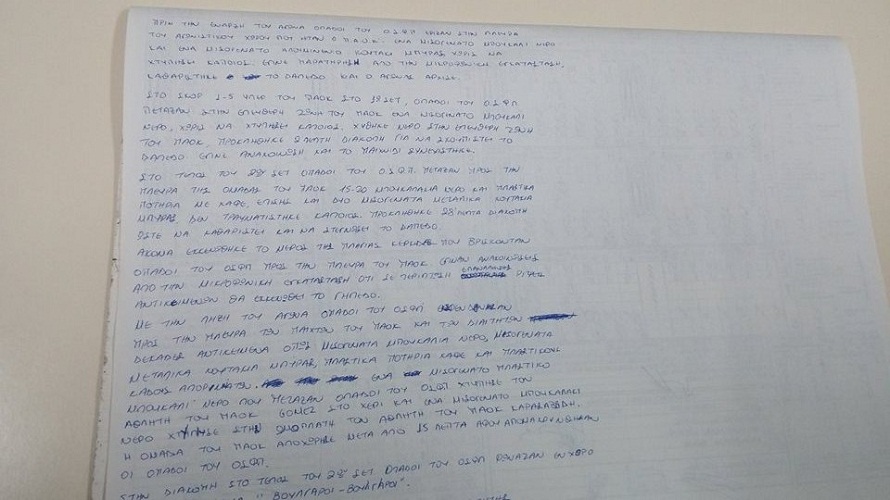 ΠΡΙΝ ΤΗΝ ΕΝΑΡΞΗ ΤΟΥ ΑΓΩΝΑ ΟΠΑΔΟΙ ΤΟΥ Ο.Σ.Φ.Π ΕΡΙΞΑΝ ΣΤΗΝ ΠΛΕΥΡΑ
ΤΟΥ ΑΓΩΝΙΣΤΙΚΟΥ ΧΩΡΟΥ ΠΟΥ ΗΤΑΝ Ο Π.Α.Ο.Κ. ΕΝΑ ΜΙΣΟΓΕΜΑΤΟ ΜΠΟΥΚΑΛΙ ΝΕΡΟ
ΚΑΙ ΕΝΑ ΜΙΣΟΓΕΜΑΤΟ ΑΛΟΥΜΙΝΕΝΙΟ ΚΟΥΤΑΚΙ ΜΠΥΡΑΣ ΧΩΡΙΣ ΝΑ
ΧΤΥΠΗΣΕΙ ΚΑΠΟΙΟΣ. ΕΓΙΝΕ ΠΑΡΑΤΗΡΗΣΗ ΑΠΟ ΤΗΝ ΜΙΚΡΟΦΩΝΙΚΗ ΕΓΚΑΤΑΣΤΑΣΗ,
ΚΑΘΑΡΙΣΤΗΚΕ ΤΟ ΔΑΠΕΔΟ ΚΑΙ Ο ΑΓΩΝΑΣ ΑΡΧΙΣΕ.
ΣΤΟ ΣΚΟΡ 1-5 ΥΠΕΡ ΤΟΥ ΠΑΟΚ ΣΤΟ ΣΕΤ, ΟΠΑΔΟΙ ΤΟΥ Ο.Σ.Φ.Π
ΠΕΤΑΞΑΝ ΣΤΗΝ ΕΛΕΥΘΕΡΗ ΖΩΝΗ ΤΟΥ ΠΑΟΚ ΕΝΑ ΜΙΣΟΓΕΜΑΤΟ ΜΠΟΥΚΑΛΙ
ΝΕΡΟ, ΧΩΡΙΣ ΝΑ ΧΤΥΠΗΣΕΙ ΚΑΠΟΙΟΣ. ΧΥΘΗΚΕ ΝΕΡΟ ΣΤΗΝ ΕΛΕΥΘΕΡΗ ΖΩΝΗ
ΤΟΥ ΠΑΟΚ, ΠΡΟΚΛΗΘΗΚΕ ΛΕΠΤΗ ΔΙΑΚΟΠΗ ΓΙΑ ΝΑ ΣΚΟΥΠΙΣΤΕΙ ΤΟ
ΔΑΠΕΔΟ ΕΓΙΝΕ ΑΝΑΚΟΙΝΩΣΗ ΚΑΙ ΤΟ ΠΑΙΧΝΙΔΙ ΣΥΝΕΧΙΣΤΗΚΕ.
ΣΤΟ ΤΕΛΟΣ ΤΟΥ 2ου ΣΕΤ ΟΠΑΔΟΙ ΤΟΥ Ο.Σ.Φ.Π. ΠΕΤΑΞΑΝ ΠΡΟΣ ΤΗΝ
ΠΛΕΥΡΑ ΤΗΣ ΟΜΑΔΑΣ ΤΟΥ ΠΑΟΚ 15-20 ΜΠΟΥΚΑΛΑΚΙΑ ΝΕΡΟ ΚΑΙ ΠΛΑΣΤΙΚΑ
ΠΟΤΗΡΙΑ ΜΕ ΚΑΦΕ, ΕΠΙΣΗΣ ΚΑΙ ΔΥΟ ΜΙΣΟΓΕΜΑΤΑ ΜΕΤΑΛΙΚΑ ΚΟΥΤΑΚΙΑ
ΜΠΥΡΑΣ ΔΕΝ ΤΡΑΥΜΑΤΙΣΤΗΚΕ ΚΑΠΟΙΟΣ. ΠΡΟΚΛΗΘΗΚΕ ΛΕΠΤΑ ΔΙΑΚΟΠΗ
ΩΣΤΕ ΝΑ ΚΑΘΑΡΙΣΤΕΙ ΚΑΙ ΝΑ ΣΤΕΓΝΩΣΕΙ ΤΟ ΔΑΠΕΔΟ.
ΑΚΟΜΑ ΕΚΚΕΝΩΘΗΚΕ ΤΟ ΜΕΡΟΣ ΤΗΣ ΠΛΑΓΙΑΣ ΚΕΡΚΙΔΑΣ ΠΟΥ ΒΡΙΣΚΟΝΤΑΝ
ΟΠΑΔΟΙ ΤΟΥ ΟΣΦΠ ΠΡΟΣ ΤΗΝ ΠΛΕΥΡΑ ΤΟΥ ΠΑΟΚ ΕΓΙΝΑΝ ΑΝΑΚΟΙΝΩΣΕΙΣ
ΑΠΟ ΤΗΝ ΜΙΚΡΟΦΩΝΙΚΗ ΕΓΚΑΤΑΣΤΑΣΗ ΟΤΙ ΣΕ ΠΕΡΙΠΤΩΣΗ ΕΠΑΝΑΛΗΨΗΣ ΡΙΨΕΙΣ
ΑΝΤΙΚΕΙΜΕΝΩΝ ΘΑ ΕΚΚΕΝΩΘΕΙ ΤΟ ΓΗΠΕΔΟ.
ΜΕ ΤΗΝ ΛΗΞΗ ΤΟΥ ΑΓΩΝΑ ΟΠΑΔΟΙ ΤΟΥ ΟΣΦΠ
ΠΡΟΣ ΤΗΝ ΠΛΕΥΡΑ ΤΩΝ ΠΑΙΚΤΩΝ ΤΟΥ ΠΑΟΚ ΚΑΙ ΤΩΝ ΔΙΑΙΤΗΤΩΝ
ΔΕΚΑΔΕΣ ΑΝΤΙΚΕΙΜΕΝΑ ΟΠΩΣ ΜΙΣΟΓΕΜΑΤΑ ΜΠΟΥΚΑΛΙΑ ΝΕΡΟ, ΜΙΣΟΓΕΜΑΤΑ
ΜΕΤΑΛΙΚΑ ΚΟΥΤΑΚΙΑ ΜΠΥΡΑΣ, ΠΛΑΣΤΙΚΑ ΠΟΤΗΡΙΑ ΚΑΦΕ ΚΑΙ ΠΛΑΣΤΙΚΟΥΣ
ΚΑΔΟΥΣ ΑΠΟΡΙΜΑΤΩΝ. ΕΝΑ ΜΙΣΟΓΕΜΑΤΟ ΠΛΑΣΤΙΚΟ
ΜΠΟΥΚΑΛΙ ΝΕΡΟ ΠΟΥ ΠΕΤΑΞΑΝ ΟΠΑΔΟΙ ΤΟΥ ΟΣΦΠ ΧΤΥΠΗΣΕ ΤΟΝ
ΑΘΛΗΤΗ ΤΟΥ ΠΑΟΚ GOMEZ ΣΤΟ ΧΕΡΙ ΚΑΙ ΕΝΑ ΜΙΣΟΓΕΜΑΤΟ ΜΠΟΥΚΑΛΑΚΙ
ΝΕΡΟ ΧΤΥΠΗΣΕ ΣΤΗΝ ΩΜΟΠΛΑΤΗ ΤΟΝ ΑΘΛΗΤΗ ΤΟΥ ΠΑΟΚ
Η ΟΜΑΔΑ ΤΟΥ ΠΑΟΚ ΑΠΟΧΩΡΗΣΕ ΜΕΤΑ ΑΠΟ 15 ΛΕΠΤΑ ΑΦΟΥ ΑΠΟΜΑΚΡΥΝΘΗΚΑΝ
ΟΙ ΟΠΑΔΟΙ ΤΟΥ ΟΣΦΠ.
ΣΤΗΝ ΔΙΑΚΟΠΗ ΣΤΟ ΤΕΛΟΣ ΤΟΥ 2ου ΣΕΤ ΟΠΑΔΟΙ ΤΟΥ ΟΣΦΠ ΦΩΝΑΞΑΝ ΕΝ ΧΟΡΩ
"ΒΟΥΛΓΑΡΟΙ-ΒΟΥΛΓΑΡΟΙ".